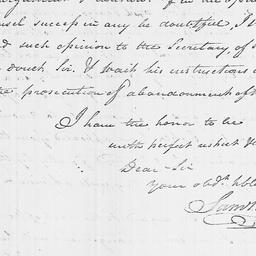 sel success in any be doubtful, I
such opinion to the Secretary of
Sir. & wait his instructions
prosecution of abandonment of
I have the honor to be
with perfect respect
Dear Sir
your obdt. hble
Saml